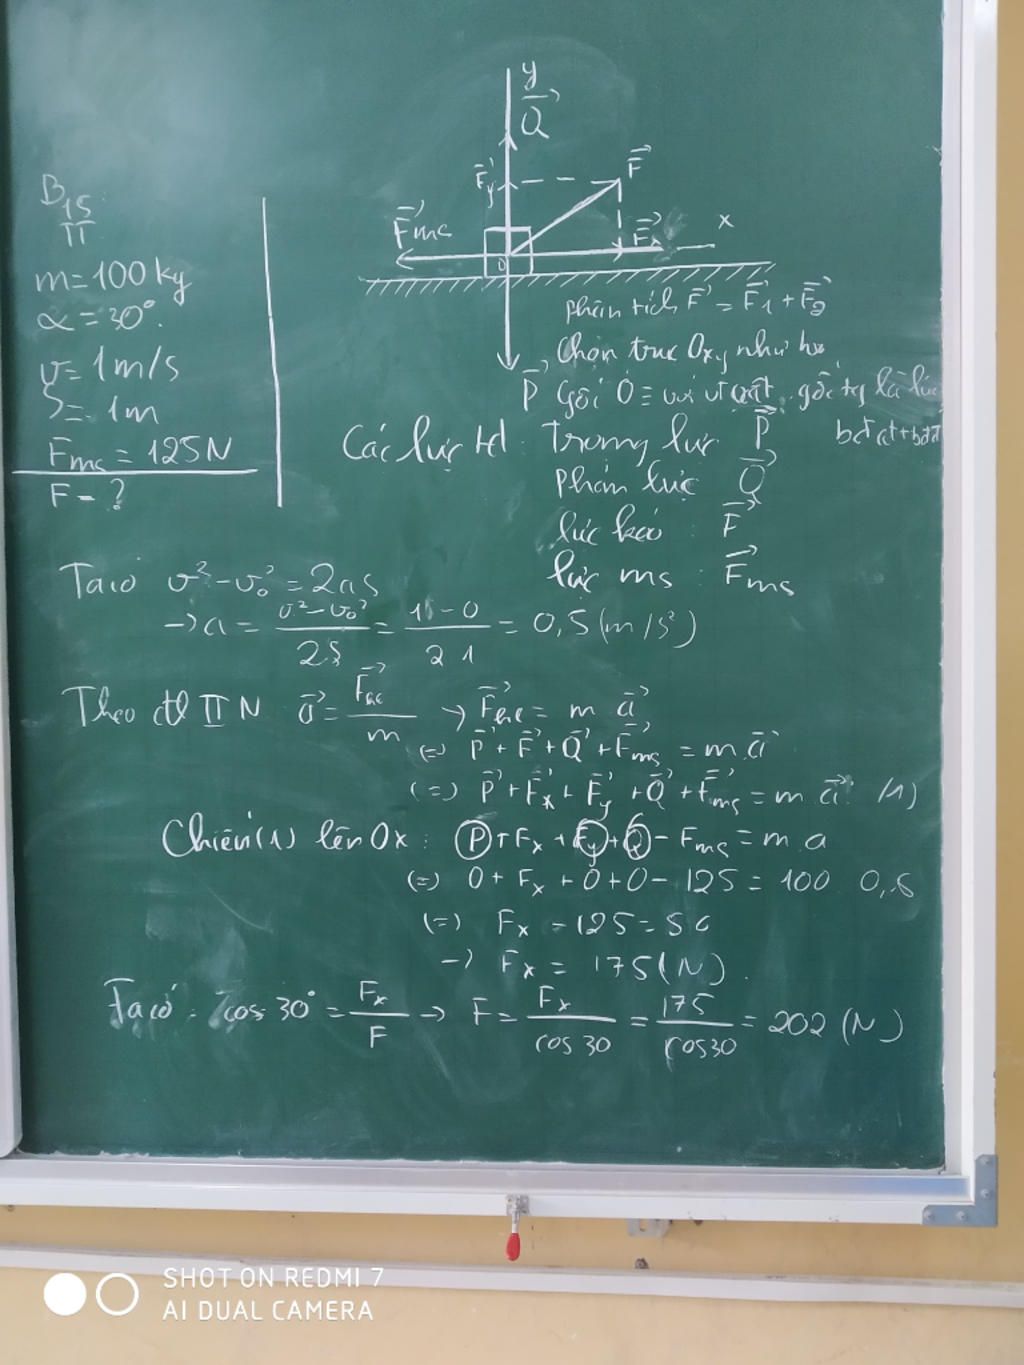 y
Q
F
Fy
Fmc
Fx
x
O
P
B15
II
m = 100 kg
α = 30°.
v = 1 m/s
S = 1m
Fms = 125N
F = ?
phân tích F = F1 + F2
Chọn trục Oxy như hv
Gốc O ≡ với vị vật, gốc tg là lúc
bđ
Các lực td: Trọng lực P
phản lực Q
lực kéo : F
lực ms : Fms
Ta có v² - v₀² = 2as
→ a = (v² - v₀²)/2S = (1² - 0)/(2 1) = 0,5 (m/s²)
Theo đl II N a = Fhl/m → Fhl = m a
(=) P + F + Q + Fms = m a
(=) P + Fx + Fy + Q + Fms = m a (1)
Chiếu (1) lên Ox : P + Fx + Fy + Q - Fms = m a
(=) 0 + Fx + 0 + 0 - 125 = 100 0,5
(=) Fx - 125 = 50
→ Fx = 175 (N).
Ta có: cos 30° = Fx/F → F = Fx/cos 30 = 175/cos30 = 202 (N)
SHOT ON REDMI 7
AI DUAL CAMERA